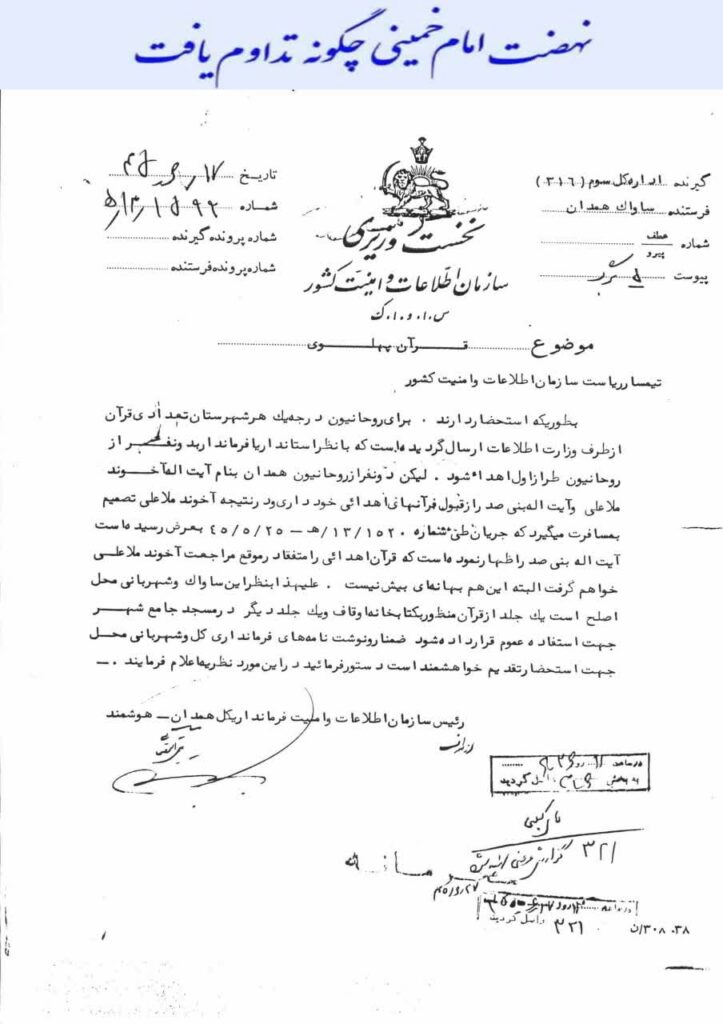 نهضت امام خمینی چگونه تداوم یافت
گیرنده اداره کل سوم (۳۱۶)
فرستنده ساواك همدان
شماره عطف پیرو
پیوست
تاریخ
شماره
شماره پرونده گیرنده
شماره پرونده فرستنده
نخست وزیری
سازمان اطلاعات و امنیت کشور
س.ا.و.ا.ک
موضوع قرآن پهلوی
تیمسار ریاست سازمان اطلاعات و امنیت کشور
بطوریکه استحضار دارند . برای روحانیون درجه یك هر شهرستان تعدادی قرآن
از طرف وزارت اطلاعات ارسال گردیده است که با نظر استاندار یا فرماندار بد ونفر از
روحانیون طراز اول اهداء شود . لیکن دونفر از روحانیون همدان بنام آیت اله آخوند
ملاعلی وآیت اله بنی صدر از قبول قرآنهای اهدائی خودداری ود رنتیجه آخوند ملاعلی تصمیم
بمسافرت میگیرد که جریان طی شماره ۱۳/۱۵۲۰/هـ - ۴۵/۵/۲۵ بعرض رسیده است
آیت اله بنی صدر اظهار نموده است که قرآن اهدائی را متعاقد رموقع مراجعت آخوند ملاعلی
خواهم گرفت البته این هم بهانهای بیش نیست . علیهذا بنظر این ساواك وشهربانی محل
اصلح است یك جلد از قرآن منظور بکتابخانه اوقاف ویك جلد دیگر در مسجد جامع شهر
جهت استفاده عموم قرار داده شود ضمنا رونوشت نامه های فرمانداری کل وشهربانی محل
جهت استحضار تقدیم خواهشمند است دستور فرمائید در این مورد نظریه اعلام فرمایند .-
رئیس سازمان اطلاعات وامنیت فرمانداریکل همدان - هوشمند
از طرف
در ساعت روز
به بخش واصل گردید
بایگانی
۳۲۱
گزارش
واصل گردید
۳۲۱
۳۰۸-۳۸/ن